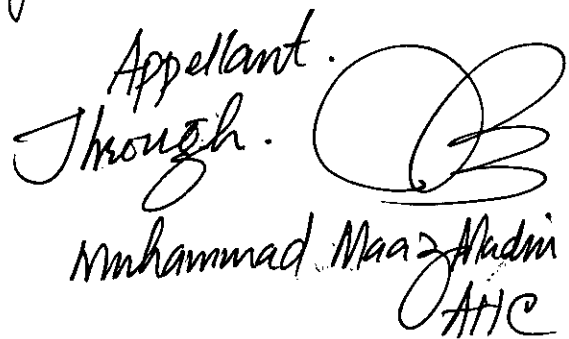 Appellant.
Through.
Muhammad Maaz Madni
AHC